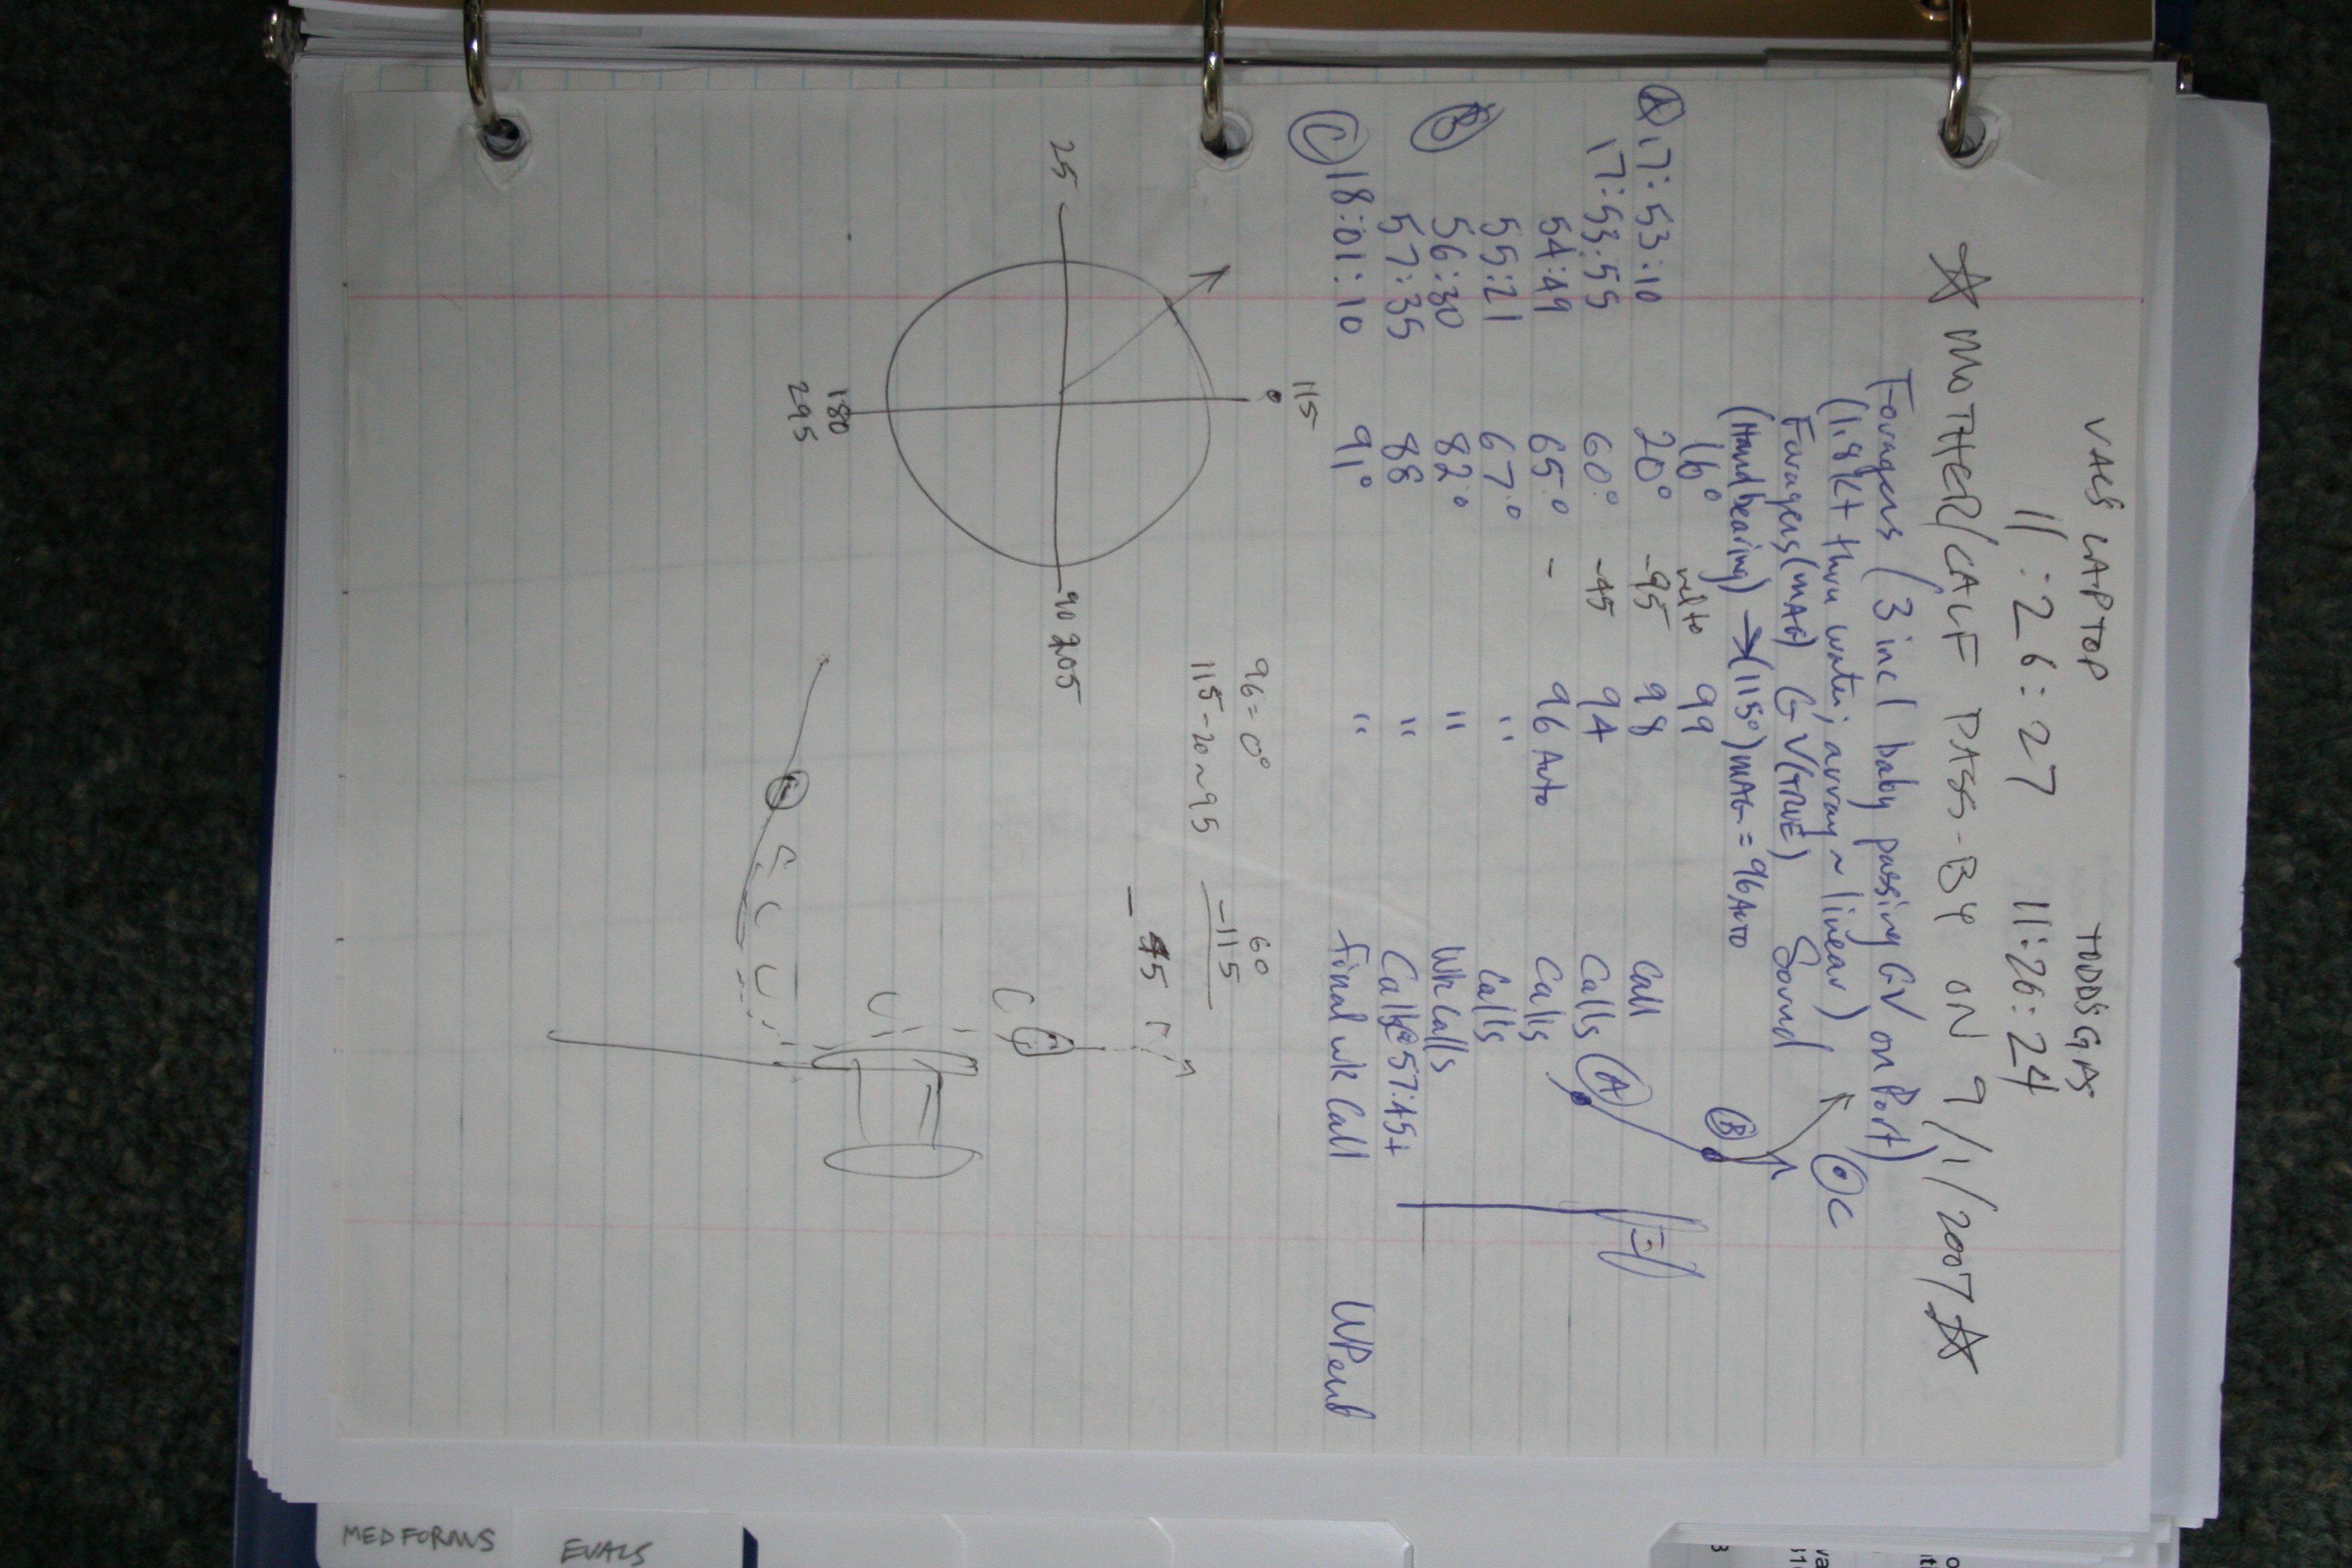 VAL'S LAPTOP TODD'S GPS
11:26:27 11:26:24
MOTHER/CALF PASS-BY ON 9/1/2007
Foragers (3 incl baby passing GV on Port)
(1.8kt thru water; array ~ linear)
Foragers (MAG) GV (TRUE) Sound
(Hand bearing) → (115°) MAG = 96 Auto
16° rel to 99
A 17:53:10 20° -95 98 Call
17:53:55 60° -45 94 Calls
54:49 65° - 96 Auto Calls
55:21 67° " Calls
B 56:30 82° " Wk Calls
57:35 88 " Calls@57:45+
C 18:01:10 91° " Final wk Call
A
B
C
115
96=0°
115-20~95
60
-115
-45
25
90 205
180
295
MED FORMS
EVALS